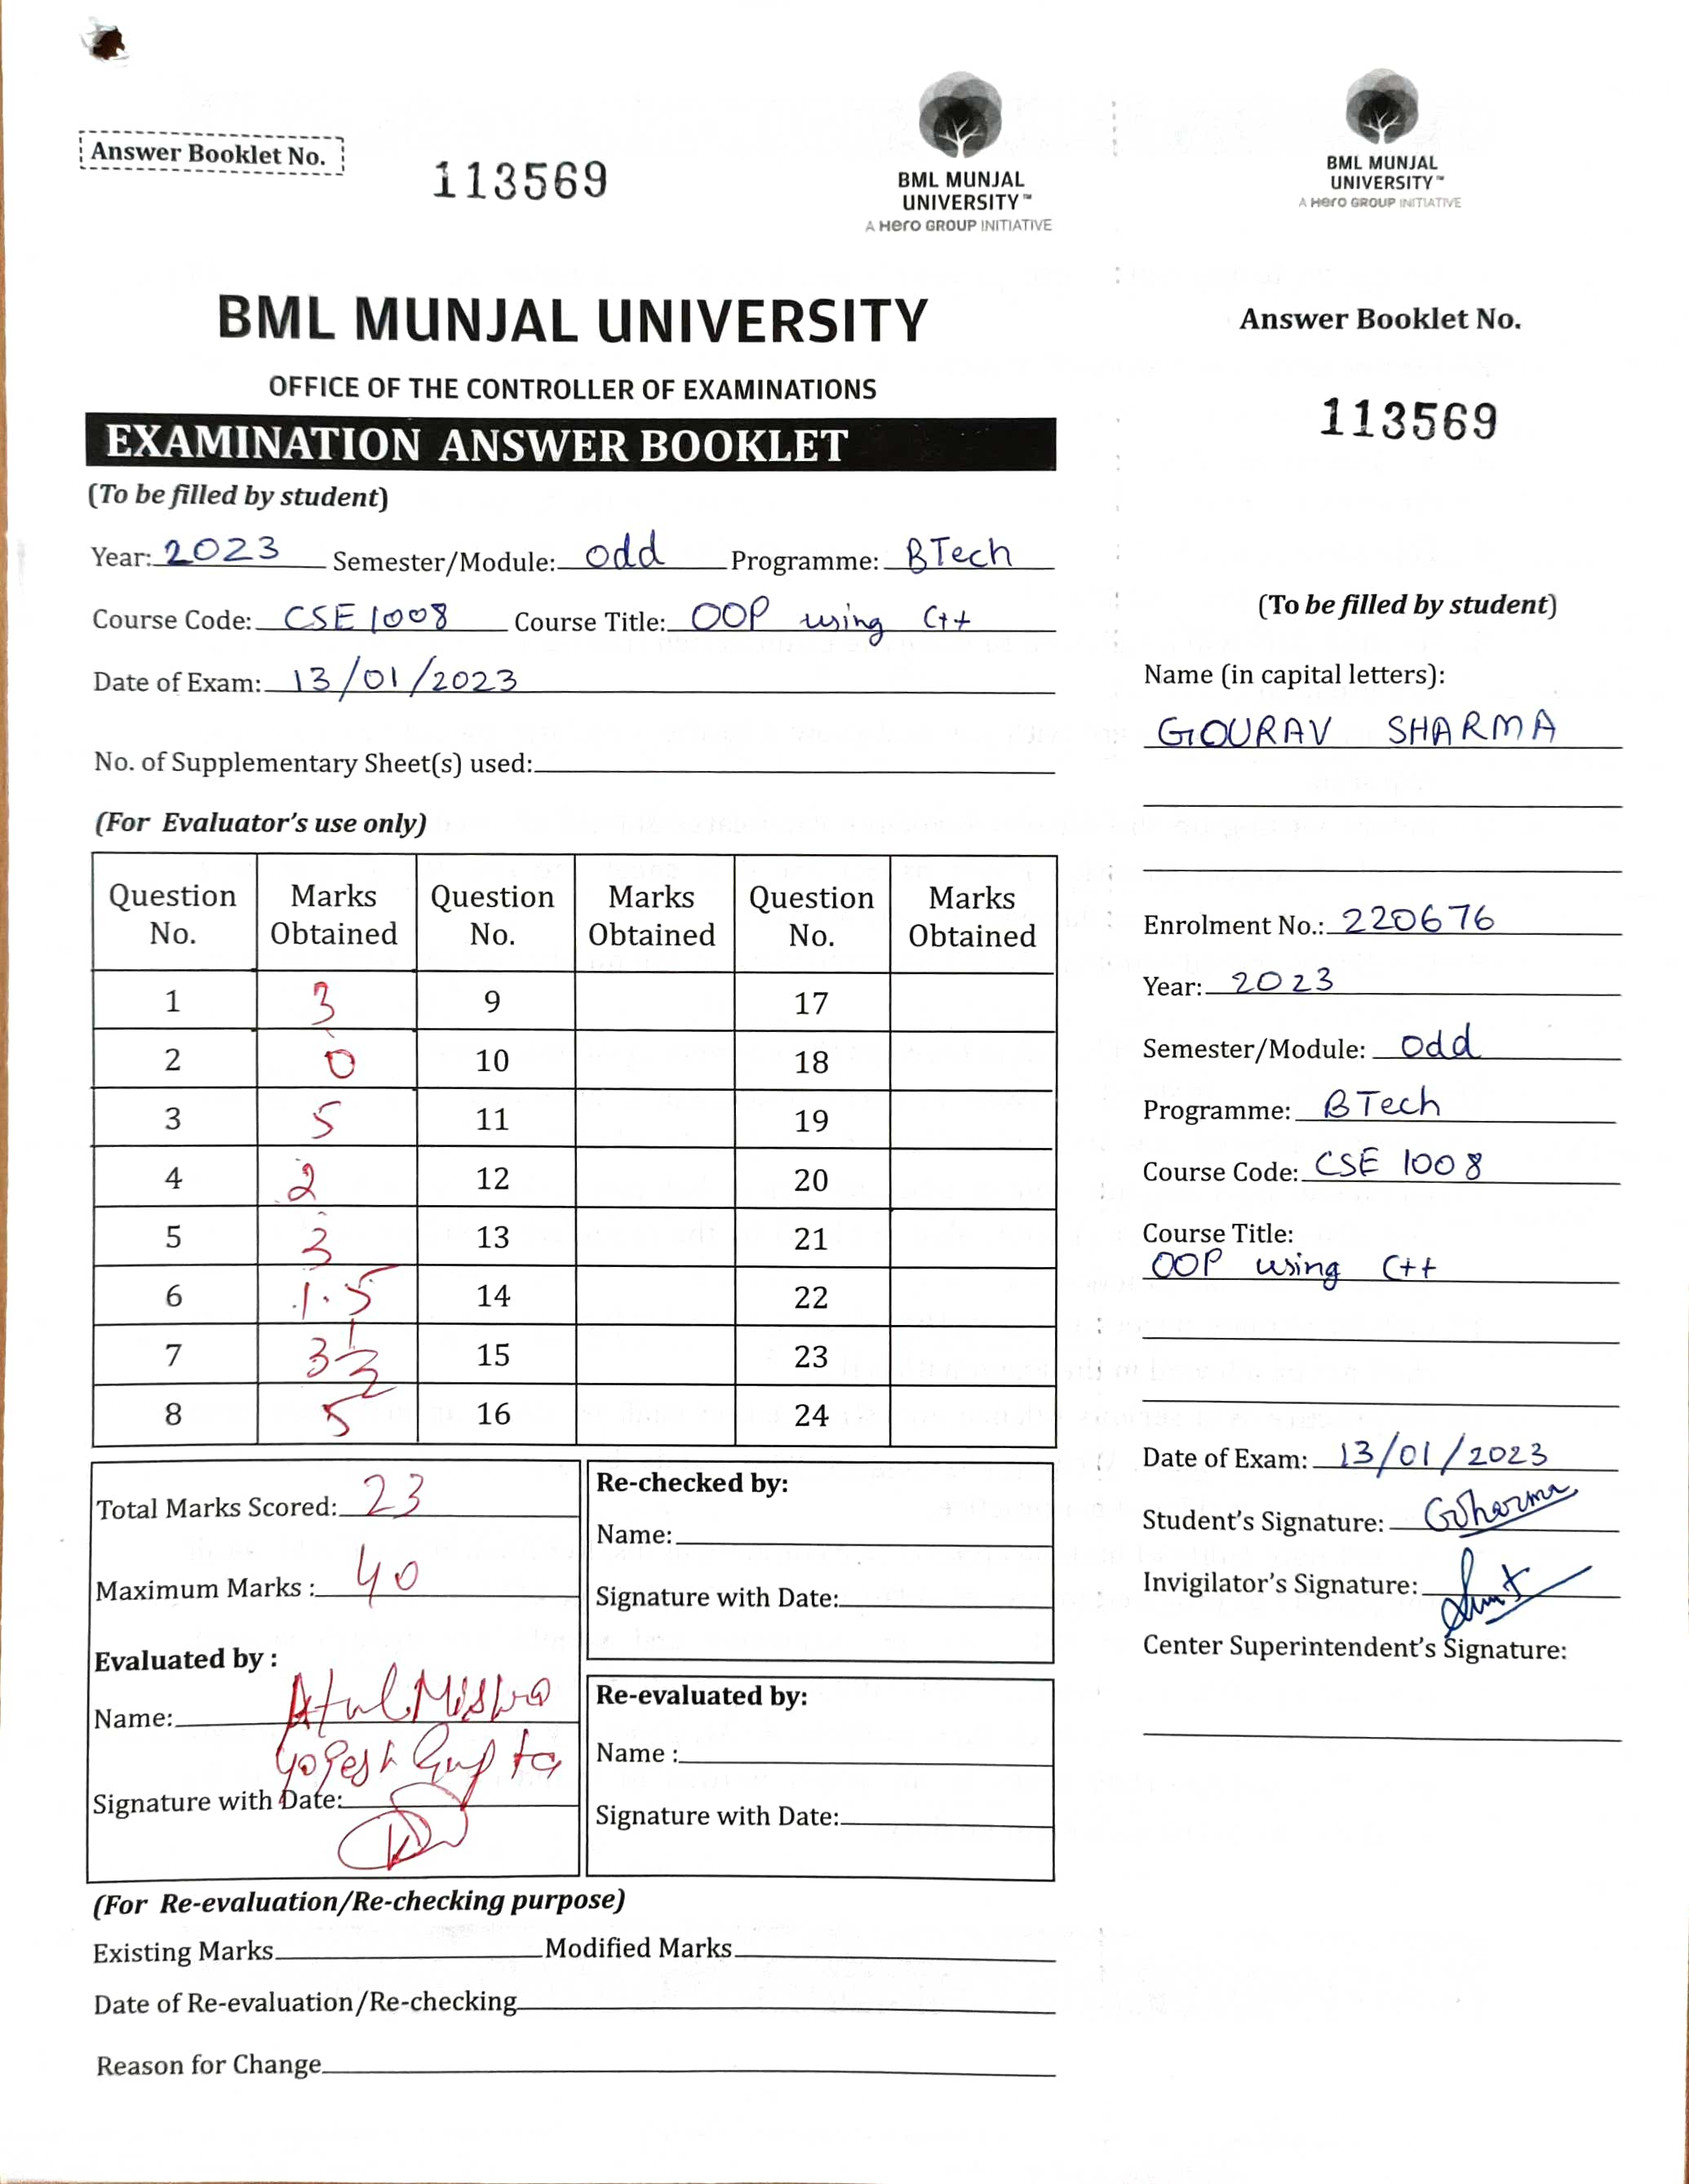 Answer Booklet No.
113569
BML MUNJAL
UNIVERSITY™
A Hero GROUP INITIATIVE
BML MUNJAL UNIVERSITY
OFFICE OF THE CONTROLLER OF EXAMINATIONS
EXAMINATION ANSWER BOOKLET
(To be filled by student)
Year: 2023 Semester/Module: odd Programme: BTech
Course Code: CSE 1008 Course Title: OOP using C++
Date of Exam: 13/01/2023
No. of Supplementary Sheet(s) used:
(For Evaluator's use only)
Question No. Marks Obtained Question No. Marks Obtained Question No. Marks Obtained
1 3 9 17
2 0 10 18
3 5 11 19
4 2 12 20
5 3 13 21
6 1.5 14 22
7 3½ 15 23
8 5 16 24
Total Marks Scored: 23
Maximum Marks : 40
Evaluated by :
Name: Atul Mishra
Yogesh Gupta
Signature with Date:
Re-checked by:
Name:
Signature with Date:
Re-evaluated by:
Name :
Signature with Date:
(For Re-evaluation/Re-checking purpose)
Existing Marks Modified Marks
Date of Re-evaluation/Re-checking
Reason for Change
BML MUNJAL
UNIVERSITY™
A Hero GROUP INITIATIVE
Answer Booklet No.
113569
(To be filled by student)
Name (in capital letters):
GOURAV SHARMA
Enrolment No.: 220676
Year: 2023
Semester/Module: odd
Programme: BTech
Course Code: CSE 1008
Course Title:
OOP using C++
Date of Exam: 13/01/2023
Student's Signature: GSharma
Invigilator's Signature:
Center Superintendent's Signature: